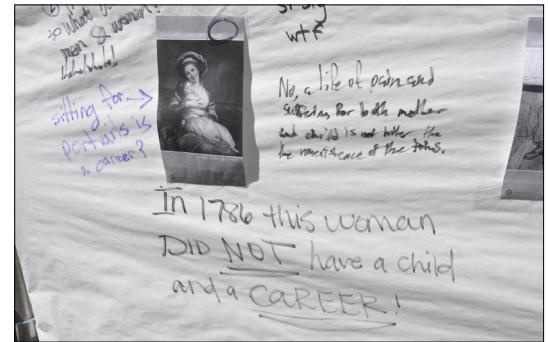 to what
men & women?
sitting for →
portraits is
a career?
wtf
No, a life of pain and
suffering for both mother
and child is not better the
the nonexistence of the fetus.
In 1786 this woman
DID NOT have a child
and a CAREER!